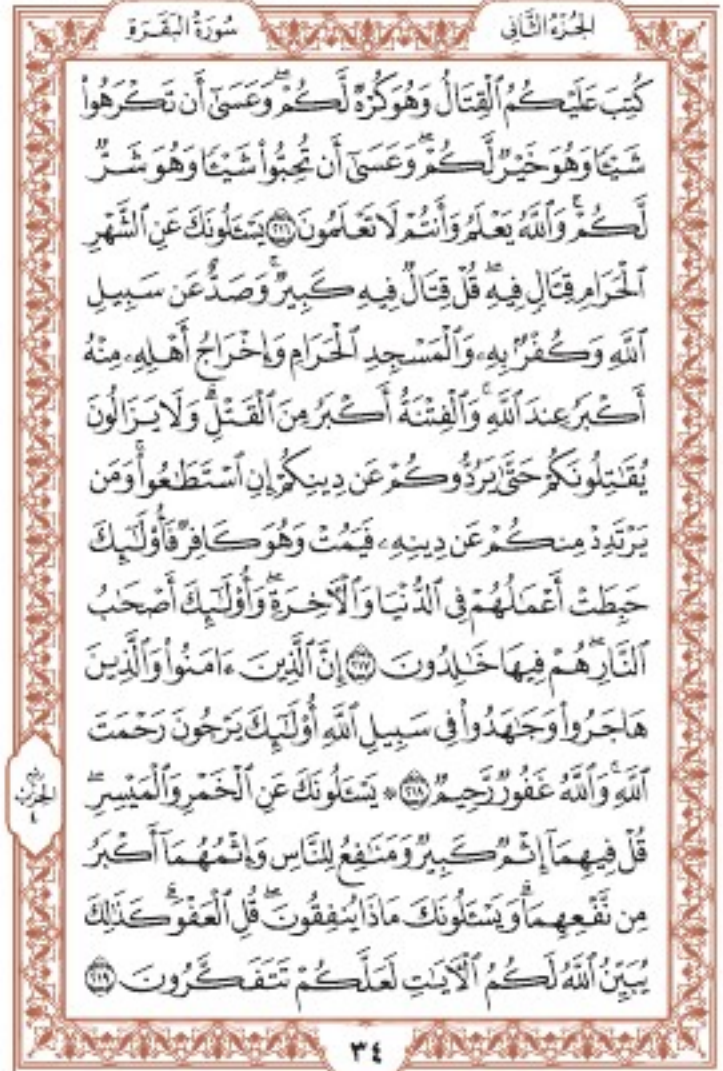 الجُزْءُ الثَّانِي
سُورَةُ الْبَقَرَةِ
كُتِبَ عَلَيْكُمُ ٱلْقِتَالُ وَهُوَ كُرْهٌ لَّكُمْ ۖ وَعَسَىٰٓ أَن تَكْرَهُوا۟
شَيْـًٔا وَهُوَ خَيْرٌ لَّكُمْ ۖ وَعَسَىٰٓ أَن تُحِبُّوا۟ شَيْـًٔا وَهُوَ شَرٌّ
لَّكُمْ ۗ وَٱللَّهُ يَعْلَمُ وَأَنتُمْ لَا تَعْلَمُونَ ٢١٦ يَسْـَٔلُونَكَ عَنِ ٱلشَّهْرِ
ٱلْحَرَامِ قِتَالٍ فِيهِ ۖ قُلْ قِتَالٌ فِيهِ كَبِيرٌ ۖ وَصَدٌّ عَن سَبِيلِ
ٱللَّهِ وَكُفْرٌۢ بِهِۦ وَٱلْمَسْجِدِ ٱلْحَرَامِ وَإِخْرَاجُ أَهْلِهِۦ مِنْهُ
أَكْبَرُ عِندَ ٱللَّهِ ۚ وَٱلْفِتْنَةُ أَكْبَرُ مِنَ ٱلْقَتْلِ ۗ وَلَا يَزَالُونَ
يُقَـٰتِلُونَكُمْ حَتَّىٰ يَرُدُّوكُمْ عَن دِينِكُمْ إِنِ ٱسْتَطَـٰعُوا۟ ۚ وَمَن
يَرْتَدِدْ مِنكُمْ عَن دِينِهِۦ فَيَمُتْ وَهُوَ كَافِرٌ فَأُو۟لَـٰٓئِكَ
حَبِطَتْ أَعْمَـٰلُهُمْ فِى ٱلدُّنْيَا وَٱلْـَٔاخِرَةِ ۖ وَأُو۟لَـٰٓئِكَ أَصْحَـٰبُ
ٱلنَّارِ ۖ هُمْ فِيهَا خَـٰلِدُونَ ٢١٧ إِنَّ ٱلَّذِينَ ءَامَنُوا۟ وَٱلَّذِينَ
هَاجَرُوا۟ وَجَـٰهَدُوا۟ فِى سَبِيلِ ٱللَّهِ أُو۟لَـٰٓئِكَ يَرْجُونَ رَحْمَتَ
ٱللَّهِ ۚ وَٱللَّهُ غَفُورٌ رَّحِيمٌ ٢١٨ ۞ يَسْـَٔلُونَكَ عَنِ ٱلْخَمْرِ وَٱلْمَيْسِرِ ۖ
قُلْ فِيهِمَآ إِثْمٌ كَبِيرٌ وَمَنَـٰفِعُ لِلنَّاسِ وَإِثْمُهُمَآ أَكْبَرُ
مِن نَّفْعِهِمَا ۗ وَيَسْـَٔلُونَكَ مَاذَا يُنفِقُونَ ۖ قُلِ ٱلْعَفْوَ ۗ كَذَٰلِكَ
يُبَيِّنُ ٱللَّهُ لَكُمُ ٱلْـَٔايَـٰتِ لَعَلَّكُمْ تَتَفَكَّرُونَ ٢١٩
ربع
الحزب
٤
٣٤